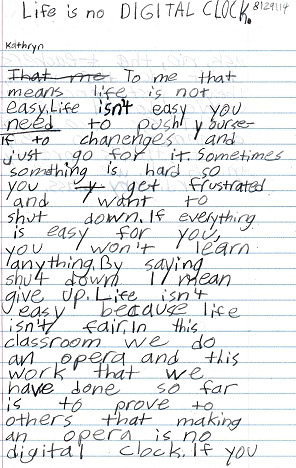 Life is no DIGITAL CLOCK. 8/29/14
Kathryn
That me To me that
means life is not
easy. Life isn't easy you
need to push y burse
lf to chanenges and
just go for it. Sometimes
something is hard so
you get frustrated
and want to
shut down. If everything
is easy for you,
you won't learn
anything. By saying
shut down I mean
give up. Life isn't
easy because life
isn't fair. In this
classroom we do
an opera and this
work that we
have done so far
is to prove to
others that making
an opera is no
digital clock. If you